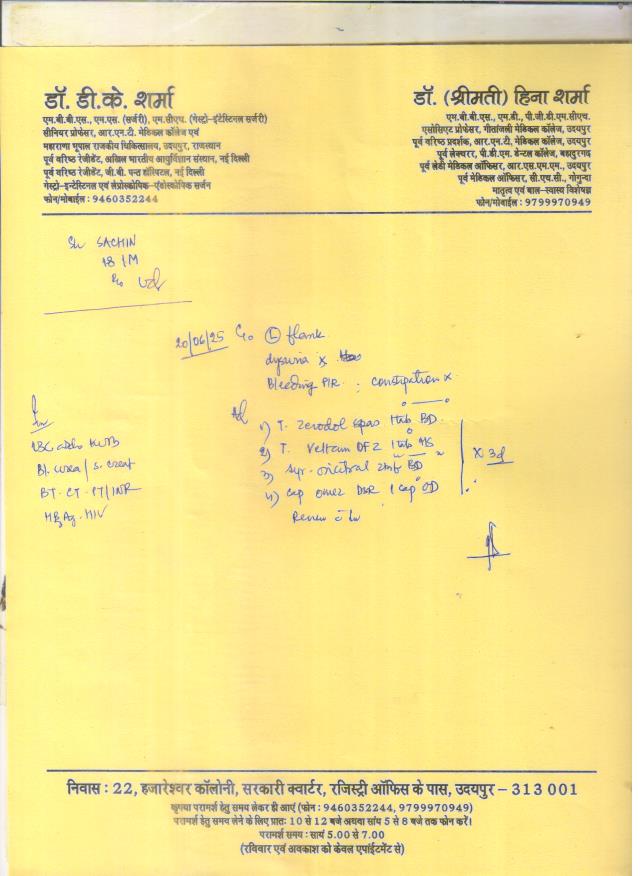 डॉ. डी.के. शर्मा
एम.बी.बी.एस., एम.एस. (सर्जरी), एम.सी.एच. (गेस्ट्रो-इंटेस्टिनल सर्जरी)
सीनियर प्रोफेसर, आर.एन.टी. मेडिकल कॉलेज एवं
महाराणा भूपाल राजकीय चिकित्सालय, उदयपुर, राजस्थान
पूर्व वरिष्ठ रेजीडेंट, अखिल भारतीय आयुर्विज्ञान संस्थान, नई दिल्ली
पूर्व वरिष्ठ रेजीडेंट, जी.बी. पन्त हॉस्पिटल, नई दिल्ली
गेस्ट्रो-इन्टेस्टिनल एवं लेप्रोस्कोपिक-एंडोस्कोपिक सर्जन
फोन/मोबाईल : 9460352244
डॉ. (श्रीमती) हिना शर्मा
एम.बी.बी.एस., एम.डी., पी.जी.डी.एम.सी.एच.
एसोसिएट प्रोफेसर, गीतांजली मेडिकल कॉलेज, उदयपुर
पूर्व वरिष्ठ प्रदर्शक, आर.एन.टी. मेडिकल कॉलेज, उदयपुर
पूर्व लेक्चरर, पी.डी.एम. डेन्टल कॉलेज, बहादुरगढ़
पूर्व लेडी मेडिकल ऑफिसर, आर.एस.एम.एम., उदयपुर
पूर्व मेडिकल ऑफिसर, सी.एच.सी., गोगुन्दा
मातृत्व एवं बाल-स्वास्थ्य विशेषज्ञ
फोन/मोबाईल : 9799970949
SACHIN
18/M
20/06/25 C/o (L) flank
dysuria x
Bleeding P/R. : constipation x
Adv
1) T. Zerodol spas 1tab BD
2) T. Veltam 1tab HS
3) Syr. BD
4) Cap omez DSR 1 cap OD
x 3d
Review c Inv
Inv
KUB
Bl. urea / S. creat
BT. CT. PT/INR
HBsAg. HIV
निवास : 22, हजारेश्वर कॉलोनी, सरकारी क्वार्टर, रजिस्ट्री ऑफिस के पास, उदयपुर – 313 001
कृपया परामर्श हेतु समय लेकर ही आएं (फोन : 9460352244, 9799970949)
परामर्श हेतु समय लेने के लिए प्रातः 10 से 12 बजे अथवा सांय 5 से 8 बजे तक फोन करें।
परामर्श समय : सायं 5.00 से 7.00
(रविवार एवं अवकाश को केवल एपाईंटमेंट से)